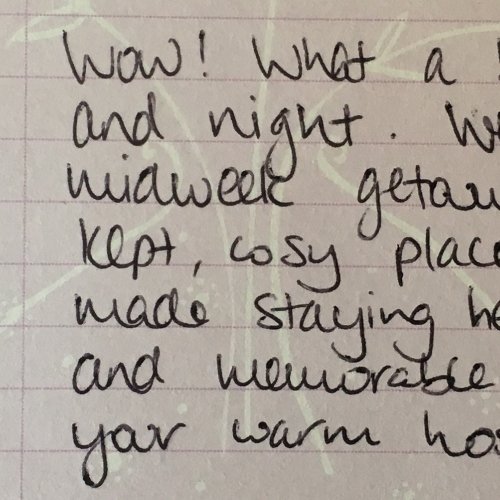 Wow! What a
and night. We
midweek getaw
kept, cosy place
made staying he
and memorable
your warm hos